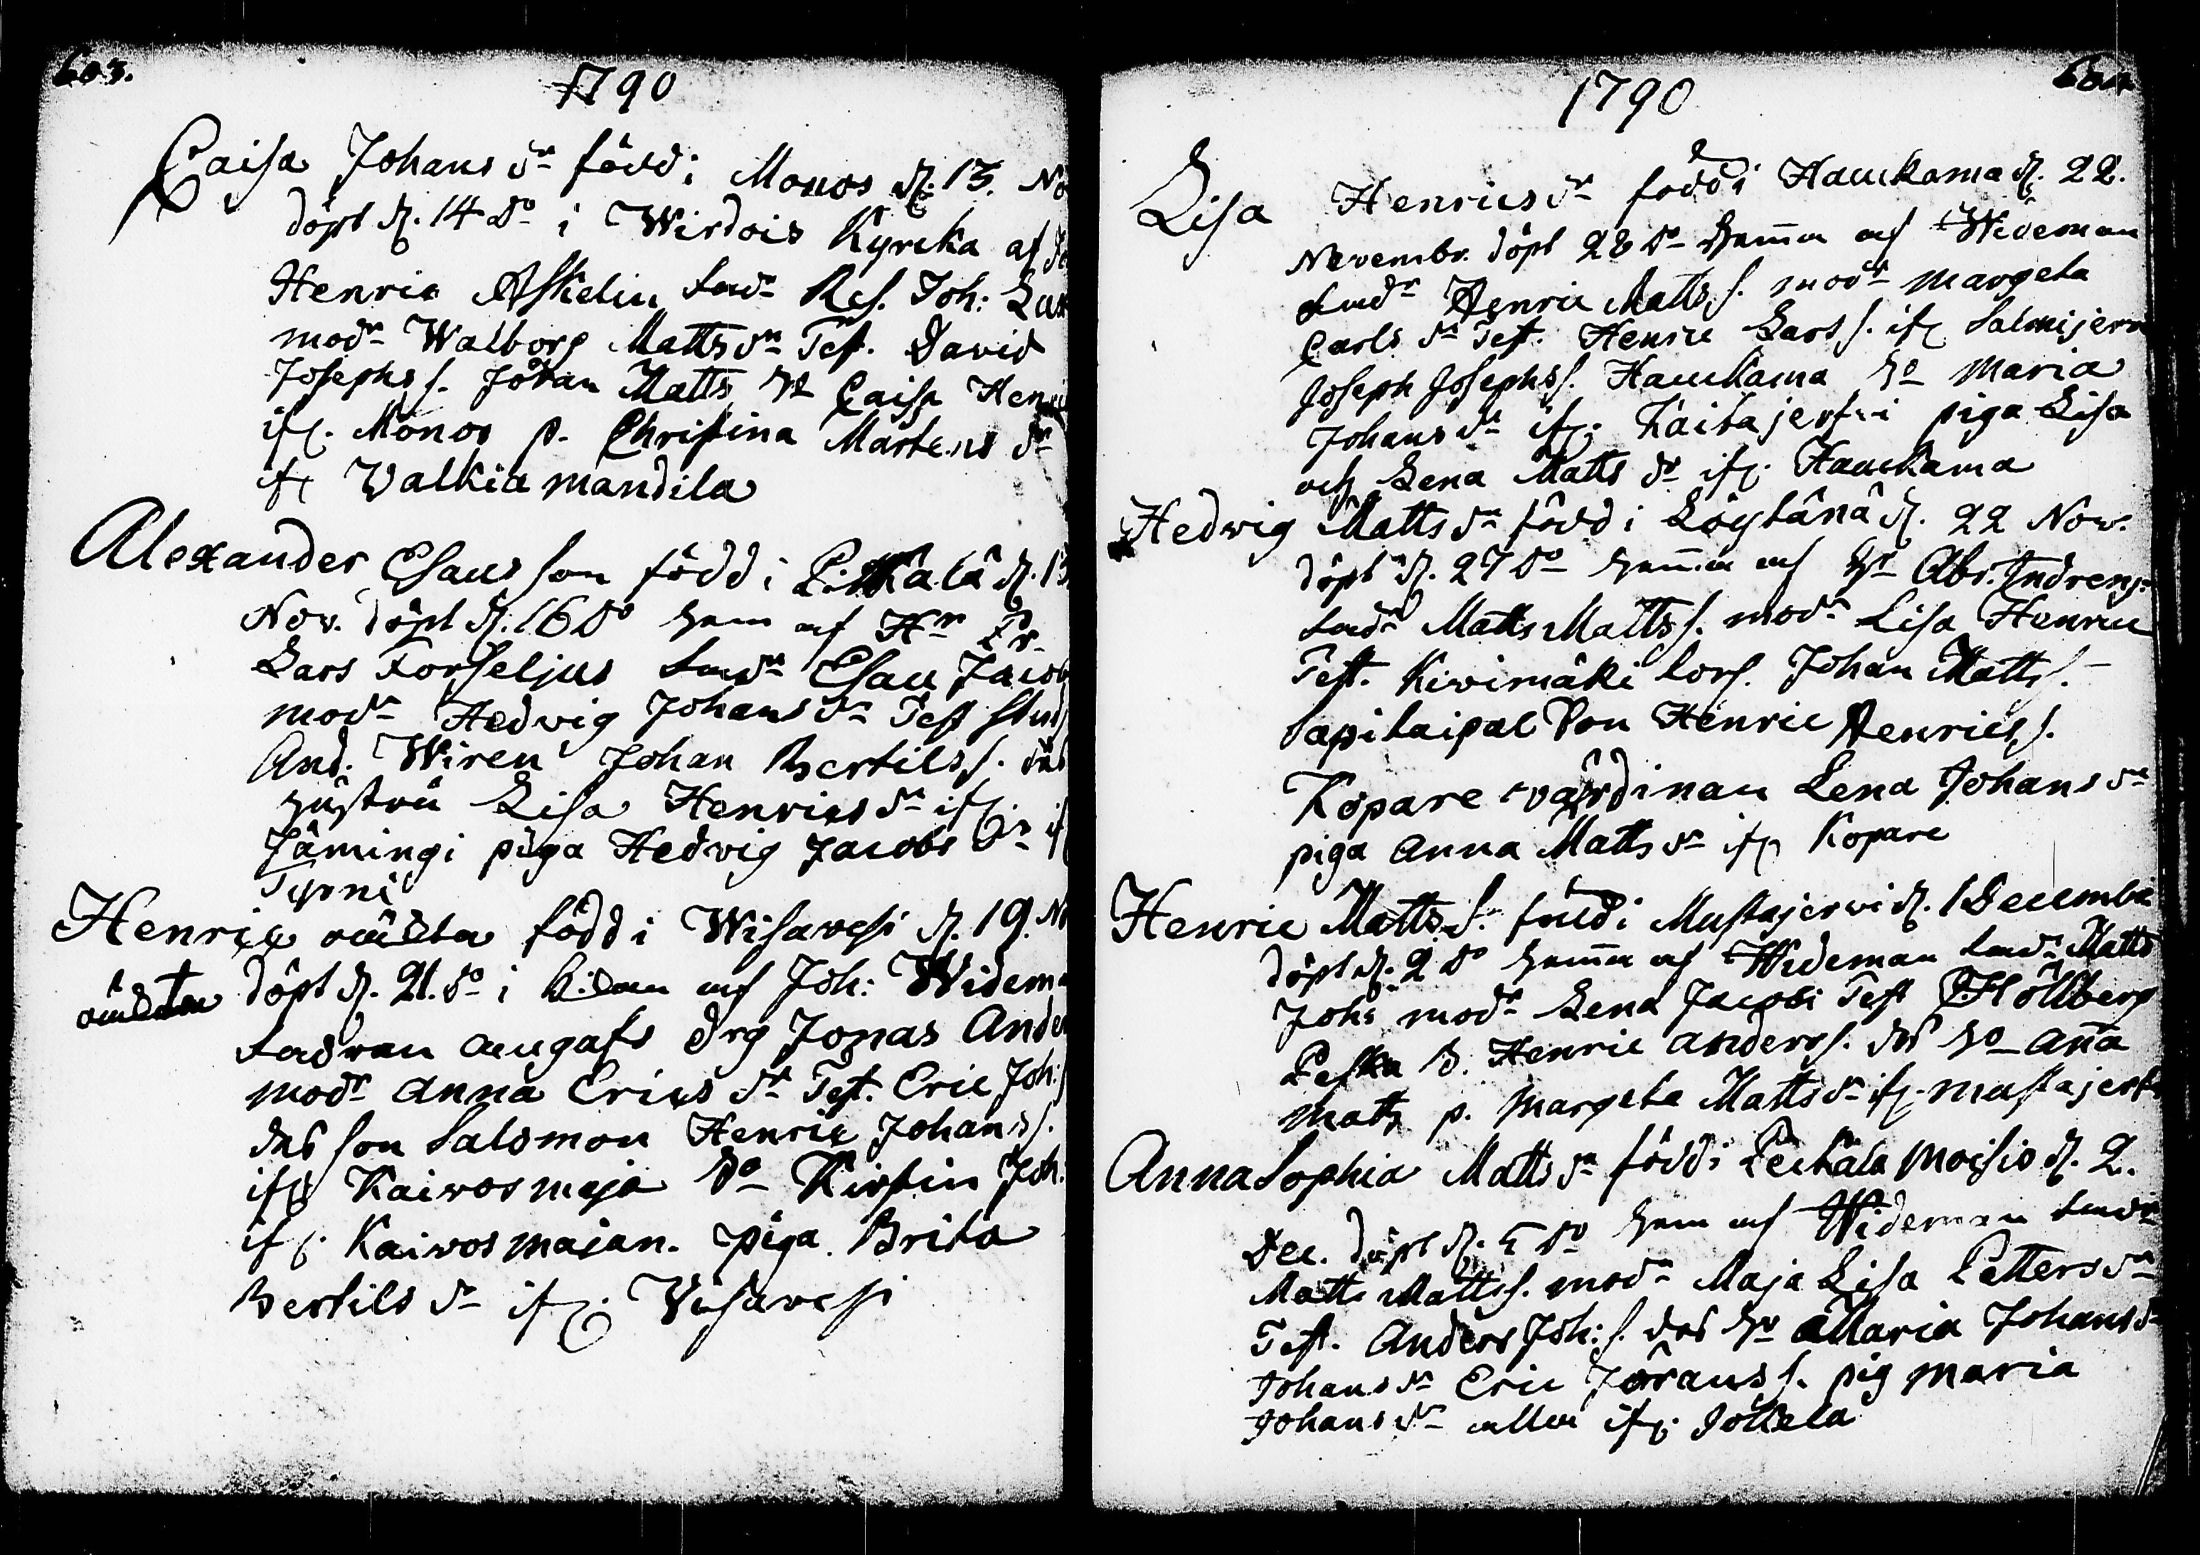 603.
1790
Caisa Johans dr född i Monos d. 13. No
döpt d. 14 do i Wirdois Kyrcka af
Henric Askelin fadr Rs. Joh: Lar
modr Walborg Matts dr Test. David
Josephs s. Jöran Matts Caisa Henri
ifr. Monos p. Christina Mårtens dr
ifr Walkiamandila
Alexander Esaus son född i d. 13
Nov. döpt d. 16 do hem af Hr Pr.
Lars Forseljus fadr Esau Jacob
modr Hedvig Johans dr Test Stud
And. Wiren Johan Bertils s. des
hustru Lisa Henrics dr ifr.
Jämingi piga Hedvig Jacobs dr if
Tyrni
Henric oäckta född i Wisavesi d. 19. No
oäckta döpt d. 21. do i af Joh: Widema
fadren angafs drg Jonas Ander
modr Anna Erics dr Test. Eric Joh: s
des son Salomon Henric Johans s.
ifr Kaivosmaja do Kirstin Joh:
ifr. Kaivosmajan. piga Brita
Bertils dr ifr. Wisavesi
604
1790
Lisa Henrics dr född i Hauckama d. 22.
Novembr. döpt 28 do hemma af Wideman
fadr Henric Matts s. modr Margeta
Carls dr Test. Henric Lars s. ifr Salmijerv
Joseph Josephs s. Hauckama ho Maria
Johans dr ifr. Kaitajerfwi piga Lisa
och Lena Matts dr ifr. Hauckama
Hedvig Matts dr född i Löytänä d. 22 Nov.
döpt d. 27 do hemma af Hr Abr. Indren
fadr Matts Matts s. modr Lisa Henric
Test. Kivimäki Johan Matts s.
Sapitaipal Bon Henric Henrics s.
Kopare wärdinan Lena Johans dr
piga Anna Matts dr ifr Kopare
Henric Matts s. född i Mustajervi d. 1 Decembr
döpt d. 2 do hemma af Wideman fadr Matts
Johs modr Lena Jacobs Test Höllberg
Peska B. Henric Anders s. des ho Anna
Matts p. Margeta Matts dr ifr. Mustajerfv
Anna Sophia Matts dr född i Peckala Moisio d. 2.
Dec. döpt d. 5 do hem af Wideman fadr
Matts Matts s. modr Maja Lisa Petters dr
Test. Anders Joh: s. des ho Maria Johans dr
Johans dr Eric Jörans s. pig Maria
Johans dr alla ifr. Jokela